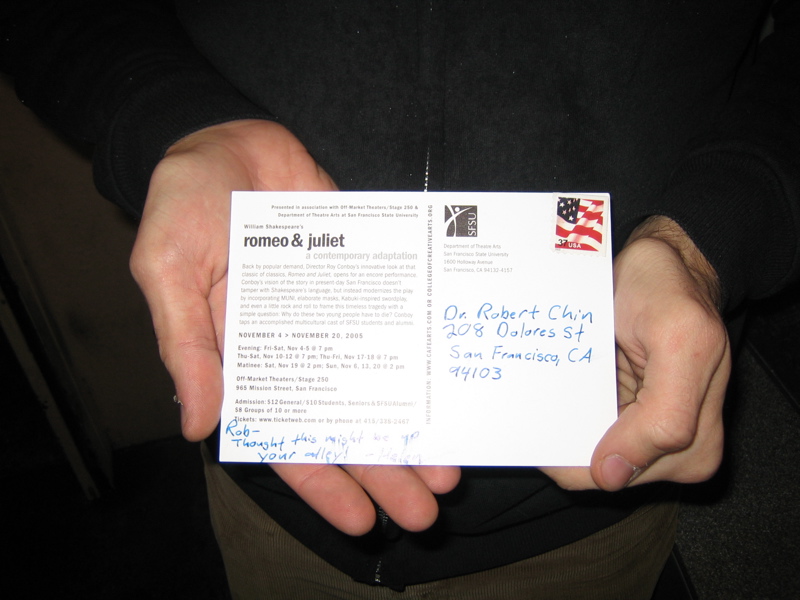 Presented in association with Off-Market Theaters/Stage 250 &
Department of Theatre Arts at San Francisco State University
William Shakespeare's
romeo & juliet
a contemporary adaptation
Back by popular demand, Director Roy Conboy's innovative look at that
classic of classics, Romeo and Juliet, opens for an encore performance.
Conboy's vision of the story in present day San Francisco doesn't
tamper with Shakespeare's language, but instead modernizes the play
by incorporating MUNI, elaborate masks, Kabuki-inspired swordplay,
and even a little rock and roll to frame this timeless tragedy with a
simple question: Why do these two young people have to die? Conboy
taps an accomplished multicultural cast of SFSU students and alumni.
NOVEMBER 4 > NOVEMBER 20, 2005
Evening: Fri-Sat, Nov 4-5 @ 7 pm
Thu-Sat, Nov 10-12 @ 7 pm; Thu-Fri, Nov 17-18 @ 7 pm
Matinee: Sat, Nov 19 @ 2 pm; Sun, Nov 6, 13, 20 @ 2 pm
Off-Market Theaters/Stage 250
965 Mission Street, San Francisco
Admission: $12 General/$10 Students, Seniors & SFSU Alumni/
$8 Groups of 10 or more
Tickets: www.ticketweb.com or by phone at 415/338-2467
Rob-
Thought this might be up
your alley! -Helen
INFORMATION: WWW.CAFEARTS.COM OR COLLEGEOFCREATIVEARTS.ORG
SFSU
Department of Theatre Arts
San Francisco State University
1600 Holloway Avenue
San Francisco, CA 94132-4157
37 USA
Dr. Robert Chin
208 Dolores St
San Francisco, CA
94103